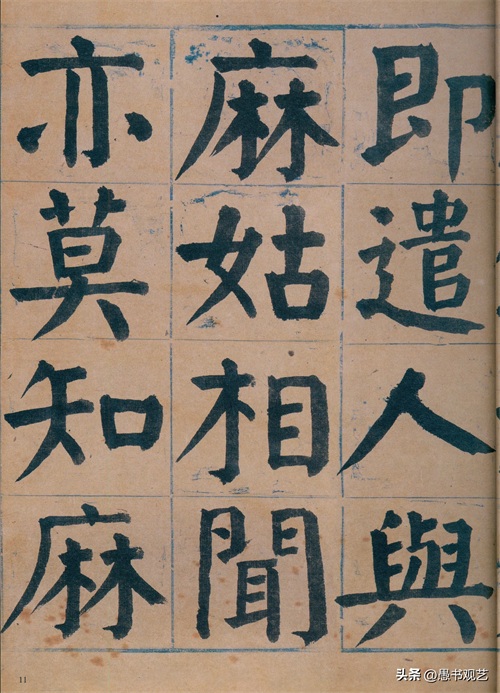 即遣人與
麻姑相聞
亦莫知麻
11
头条 @愚书观艺